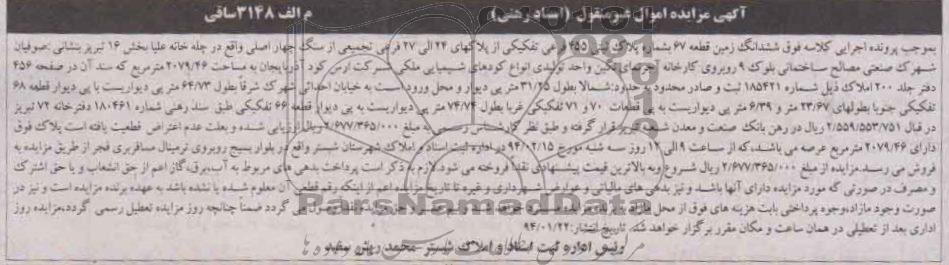 آگهی مزایده اموال غیرمنقول (اسناد رهنی) م الف ۳۱۴۸ساقی
بموجب پرونده اجرایی کلاسه فوق ششدانگ زمین قطعه ۶۷ بشماره پلاک ثبتی ۴۵۵ فرعی تفکیکی از پلاکهای ۲۴ الی ۲۷ فرعی تجمیعی از سنگ چهار اصلی واقع در چله خانه علیا بخش ۱۶ تبریز بنشانی :صوفیان
شهرک صنعتی مصالح ساختمانی بلوک ۹ روبروی کارخانه آجرنمای نگین واحد تولیدی انواع کودهای شیمیایی ملکی شرکت ارس کود آذربایجان به مساحت ۲۰۷۹/۴۶ مترمربع که سند آن در صفحه ۴۵۶
دفتر جلد ۲۰۰ املاک ذیل شماره ۱۸۵۴۲۱ ثبت و صادر محدود به حدود:شمالا بطول ۳۱/۲۵ متر پی دیوار و محل ورود است به خیابان احداثی شهرک شرقاً بطول ۶۴/۷۳ متر پی دیواریست با پی دیوار قطعه ۶۸
تفکیکی جنوبا بطولهای ۲۳/۶۷ متر و ۶/۳۹ متر پی دیواریست به پی قطعات ۷۰ و ۷۱ تفکیکی غربا بطول ۷۴/۷۴ متر پی دیواریست به پی دیوار قطعه ۶۶ تفکیکی طبق سند رهنی شماره ۱۸۰۴۶۱ دفترخانه ۷۲ تبریز
در قبال ۲/۵۵۹/۵۵۳/۷۵۱ ریال در رهن بانک صنعت و معدن شعبه تبریز قرار گرفته و طبق نظر کارشناس رسمی به مبلغ ۲/۶۷۷/۳۶۵/۰۰۰ ریال ارزیابی شده و بعلت عدم اعتراض قطعیت یافته است پلاک فوق
دارای ۲۰۷۹/۴۶ مترمربع عرصه می باشد،که از ساعت ۹ الی ۱۲ روز سه شنبه مورخ ۹۴/۰۲/۱۵ در اداره ثبت اسناد و املاک شهرستان شبستر واقع در بلوار بسیج روبروی ترمینال مسافربری فجر از طریق مزایده به
فروش می رسد.مزایده از مبلغ ۲/۶۷۷/۳۶۵/۰۰۰ ریال شروع وبه بالاترین قیمت پیشنهادی نقدا فروخته می شود.لازم به ذکر است پرداخت بدهی های مربوط به آب،برق،گاز اعم از حق انشعاب و یا حق اشتراک
و مصرف در صورتی که مورد مزایده دارای آنها باشد و نیز بدهی های مالیاتی و عوارض شهرداری و غیره تا تاریخ مزایده اعم از اینکه رقم قطعی آن معلوم شده یا نشده باشد به عهده برنده مزایده است و نیز در
صورت وجود مازاد،وجوه پرداختی بابت هزینه های فوق از محل مازاد گردد ضمناً چنانچه روز مزایده تعطیل رسمی گردد،مزایده روز
اداری بعد از تعطیلی در همان ساعت و مکان مقرر برگزار خواهد شد. تاریخ انتشار:۹۴/۰۱/۲۲
رئیس اداره ثبت اسناد و املاک شبستر
ParsNamadData